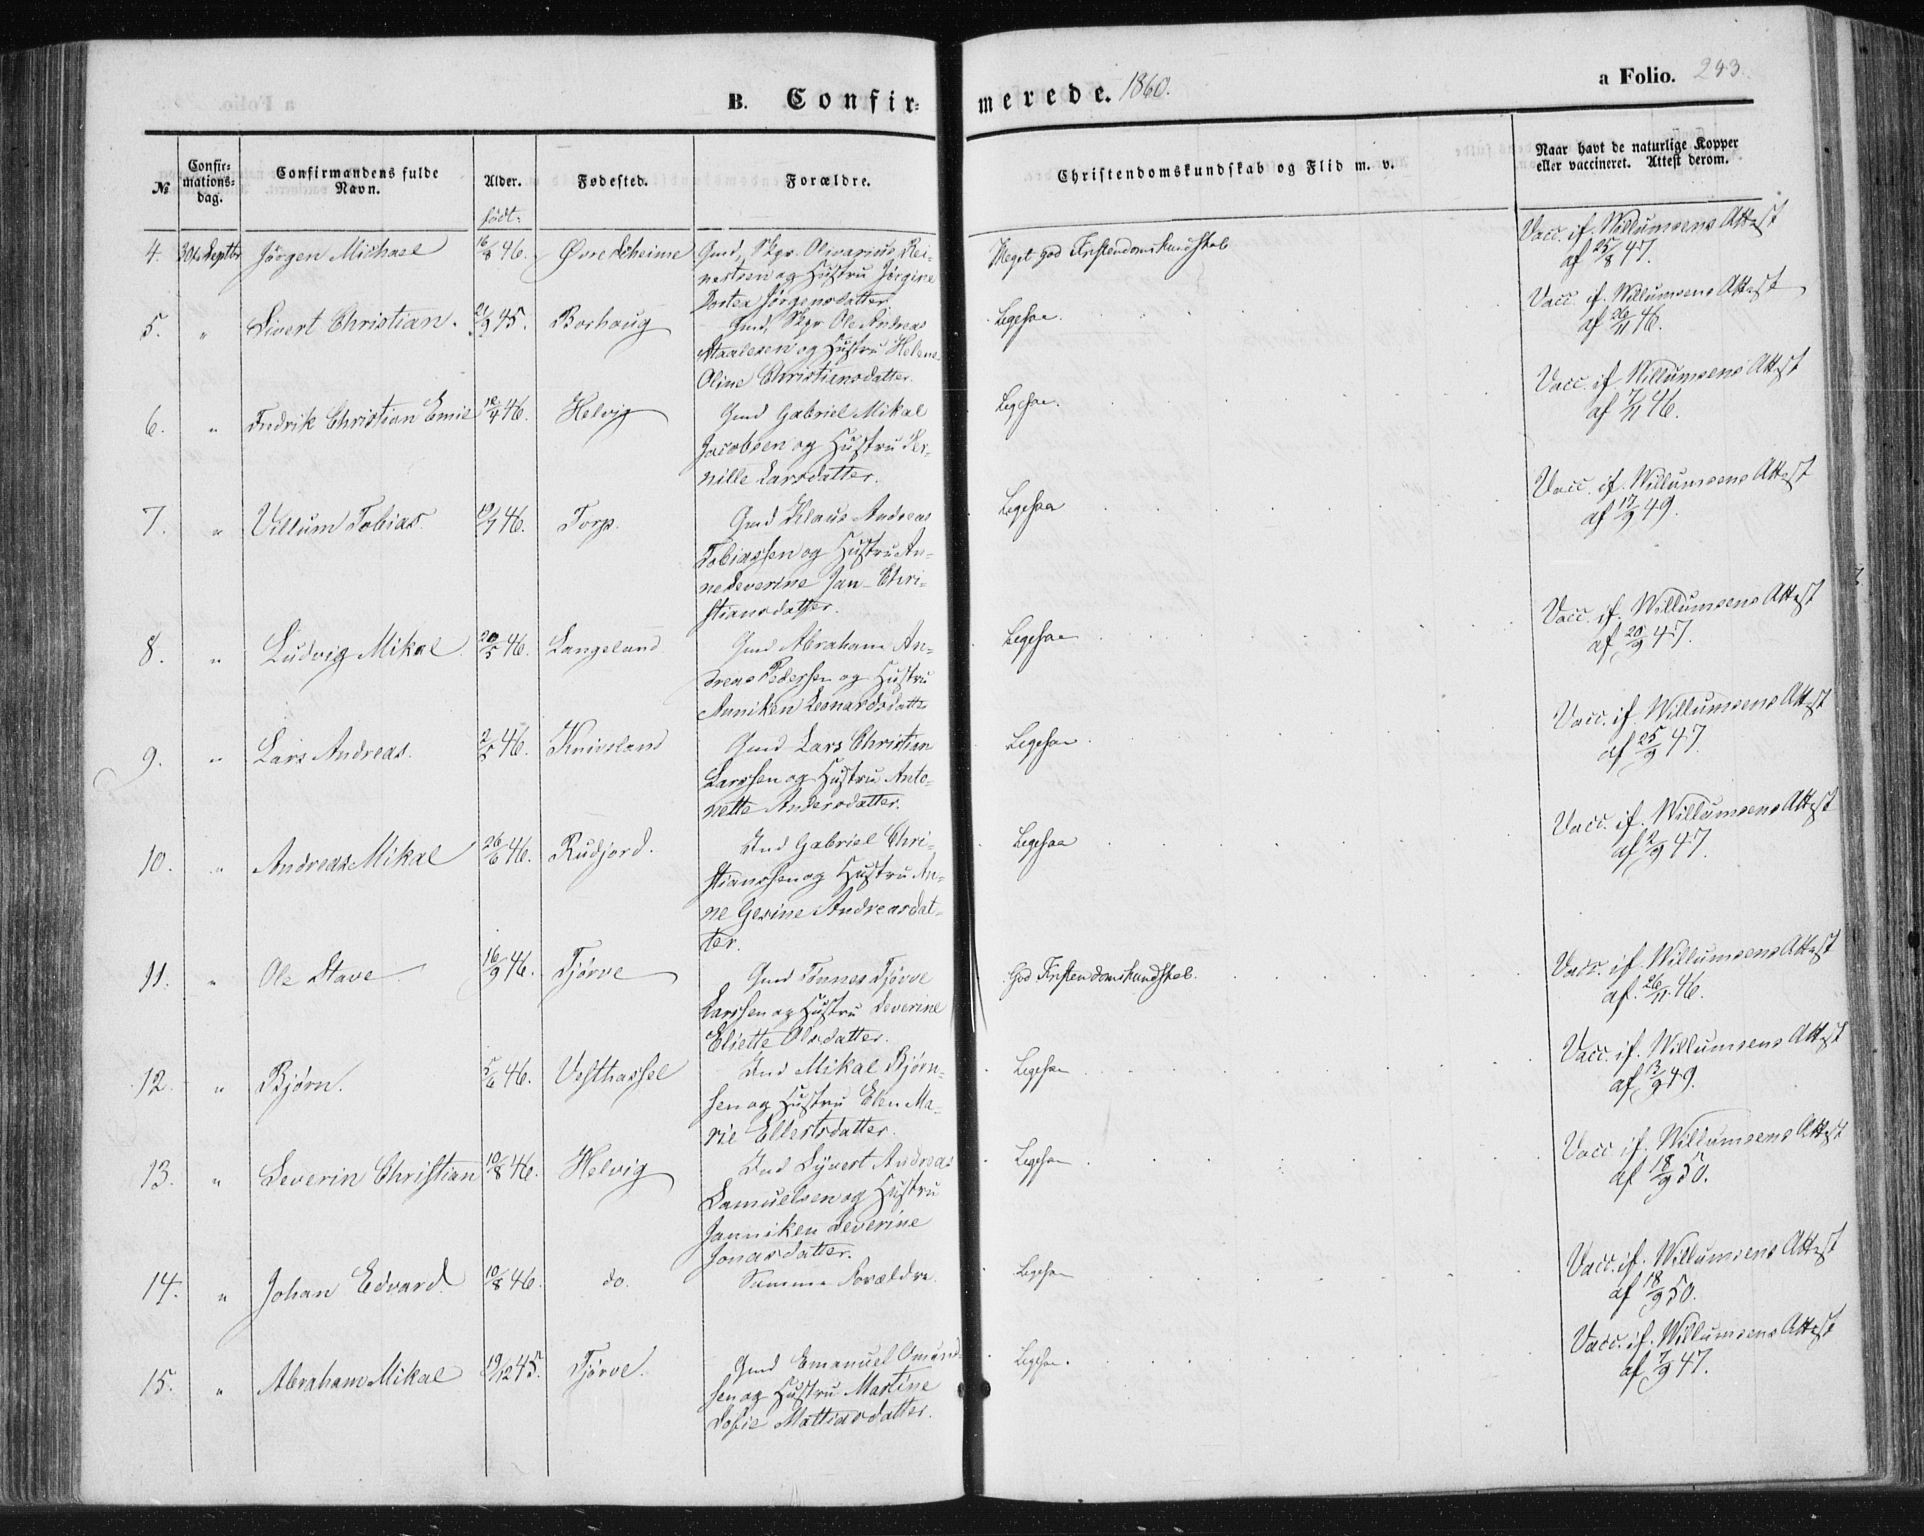 B. Confir-
merede. 1860.
a Folio. 243.
№
Confir-
mations-
dag.
Confirmandens fulde
Navn.
Alder.
Fødested.
Forældre.
Christendomskundskab og Flid m. v.
Naar havt de naturlige Kopper
eller vaccineret. Attest derom.
født:
4. 30te Septbr Jörgen Michael 16/8 46. Øvre
Gmd, Skpr. Olivarius Rei-
nertsen og Hustru Jörgine
Dortea Jörgensdatter.
Meget god Kristendomskundskab
Vacc. if. Willumsens Attest
af 25/8 47.
5. " Sivert Christian. 21/9 45. Borhaug
Gmd, Skpr Ole Andreas
Staalesen og Hustru Helene
Oline Christiensdatter.
Ligesaa.
Vacc. if. Willumsens Attest
af 26/11 46.
6. " Fredrik Christian Emil 18/4 46. Helvig
Gmd Gabriel Mikal
Jacobsen og Hustru Per-
nille Larsdatter.
Ligesaa.
Vacc. if Willumsens Attest
af 7/11 46.
7. " Villum Tobias. 46. Torp.
Gmd Klaus Andreas
Tobiassen og Hustru An-
ne Severine Jan-Chri-
stiansdatter.
Ligesaa
Vacc. if. Willumsens Attest
af 17/9 49.
8. " Ludvig Mikal 20/5 46. Langeland
Gmd Abraham An-
dreas Pedersen og Hustru
Anniken Leonardsdatter
Ligesaa
Vacc. if. Willumsens Attest
af 20/9 47.
9. " Lars Andreas. 46. Knivsland
Gmd Lars Christian
Larssen og Hustru Anto-
nette Andersdatter.
Ligesaa
Vacc. if. Willumsens Attest
af 25/9 47.
10. " Andreas Mikal 26/6 46. Rudjord.
Ind Gabriel Chri-
stianssen og Hustru An-
ne Gesine Andreasdat-
ter.
Ligesaa
Vacc. if. Willumsens Attest
af 2/9 47.
11. " Ole Stave 16/9 46. Tjørve
Gmd Tönnes Tjörve
Larssen og Hustru Severine
Eliette Olsdatter.
God Kristendomskundskab.
Vacc. if. Willumsens Attest
af. 26/11 46.
12. " Bjørn. 5/6 46. Vesthassel
Ind Mikal Bjørn-
sen og Hustru Elen Ma-
rie Ellertsdatter.
Ligesaa
Vacc. if. Willumsens Attest
af 13/9 49.
13. " Severin Christian 10/8 46. Helvig
Ind Syvert Andreas
Samuelsen og Hustru
Janniken Severine
Jonasdatter.
Ligesaa
Vacc. if. Willumsens Attest
af 18/9 50.
14. " Johan Edvard. 10/8 46. do.
Samme Forældre.
Ligesaa
Vacc. if. Willumsens Attest
af 18/9 50.
15. " Abraham Mikal 19/12 45. Tjörve.
Gmd Emanuel Omund-
sen og Hustru Martine
Sofie Mathiasdatter.
Ligesaa.
Vacc. if. Willumsens Attest
af 7/9 47.